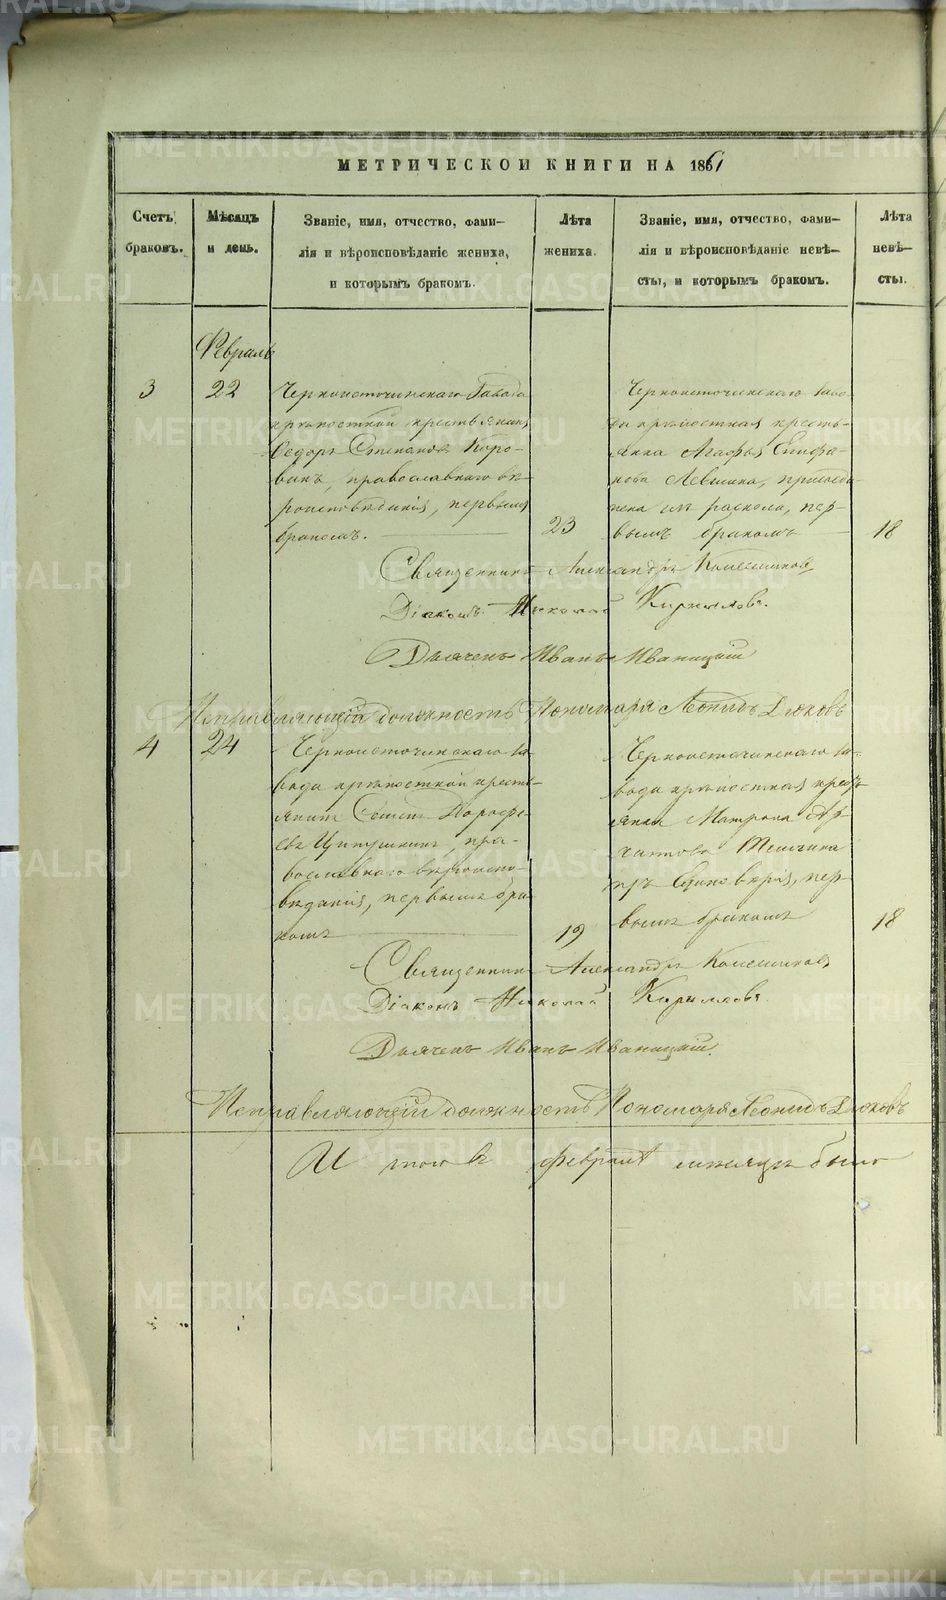 МЕТРИЧЕСКОЙ КНИГИ НА 1861
Счетъ браковъ.
Мѣсяцъ и день.
Званіе, имя, отчество, фами-
лія и вѣроисповѣданіе жениха,
и которымъ бракомъ.
Лѣта жениха.
Званіе, имя, отчество, фами-
лія и вѣроисповѣданіе невѣ-
сты, и которымъ бракомъ.
Лѣта невѣ-
сты.
Февраль
3
22
Черноисточинскаго Завода
крѣпостной крестьянинъ
Ѳедоръ Степановъ Коро-
винъ, православнаго вѣ-
роисповѣданія, первымъ
бракомъ.
23
Черноисточинскаго заво-
да крѣпостная кресть-
янка Агафья Епифа-
нова Левшина, присоеди-
нена изъ раскола, пер-
вымъ бракомъ
18
Священникъ Александръ Колесниковъ
Діаконъ Николай Кирилловъ.
Дьячекъ Иванъ Иваницкій
Исправляющій должность Пономаря Леонидъ
4
24
Черноисточинскаго за-
вода крѣпостной кресть-
янинъ Дорофе-
евъ Ципушкинъ, пра-
вославнаго вѣроиспо-
вѣданія, первымъ бра-
комъ
19
Черноисточинскаго за-
вода крѣпостная крест-
янка Матрона
единовѣрія, пер-
вымъ бракомъ
18
Священникъ Александръ Колесниковъ
Діаконъ Николай Кирилловъ.
Дьячекъ Иванъ Иваницкій.
Исправляющій должность Пономаря Леонидъ
Итого въ февралѣ мѣсяцѣ было
METRIKI.GASO-URAL.RU